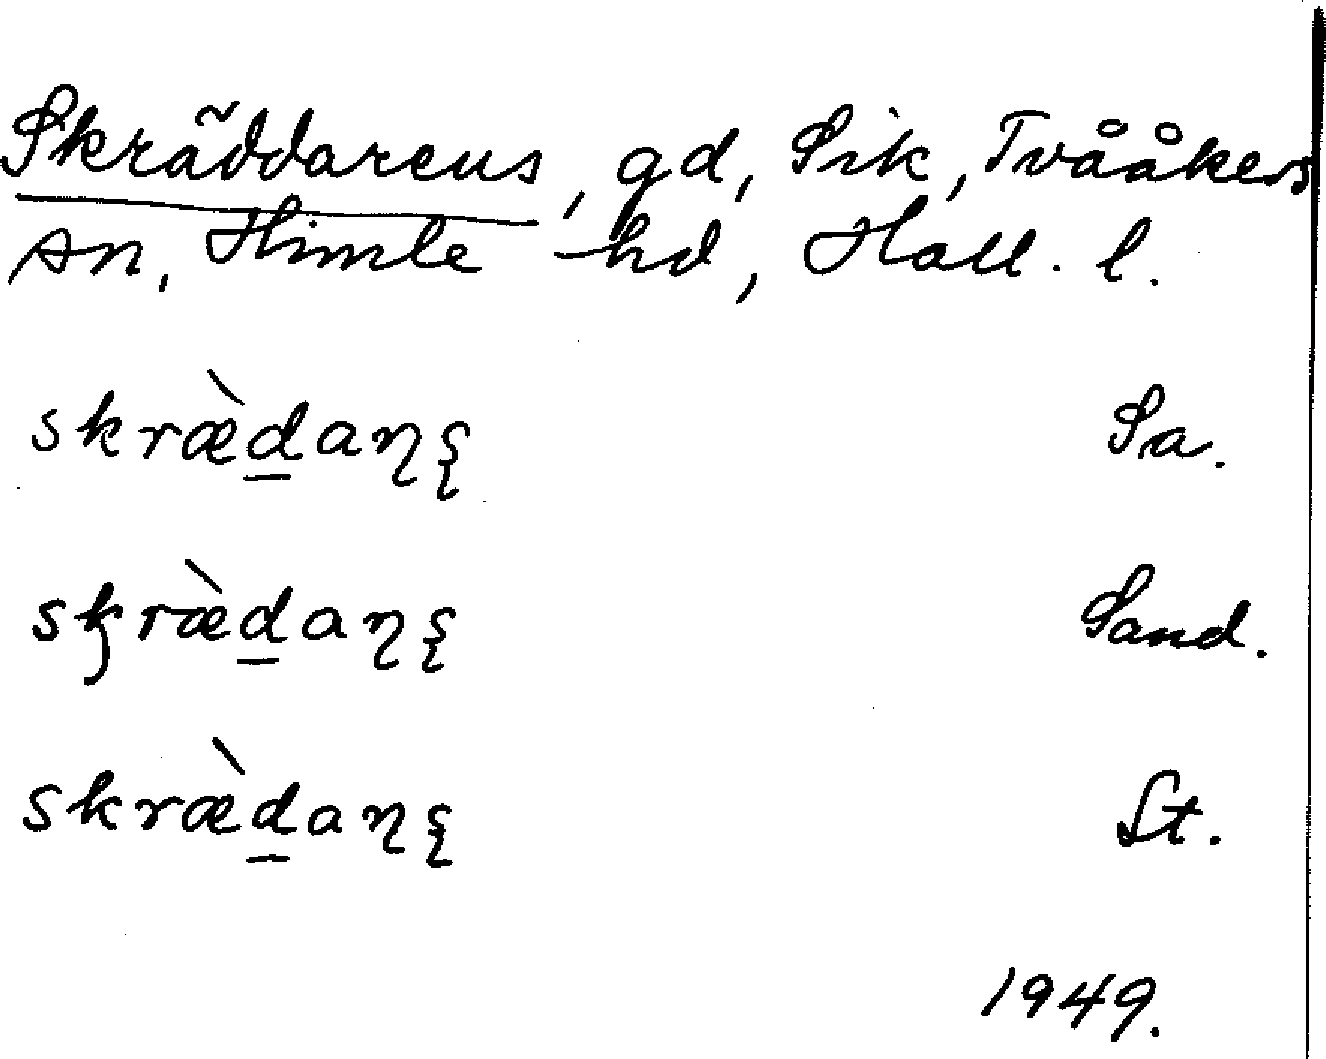 Skräddarens, gd, Sik, Tvååkers
sn, Himle hd, Hall. l.
skræ̀d̲aꞃʂ Sa.
skræ̀d̲aꞃʂ Sand.
skræ̀d̲aꞃʂ St.
1949.